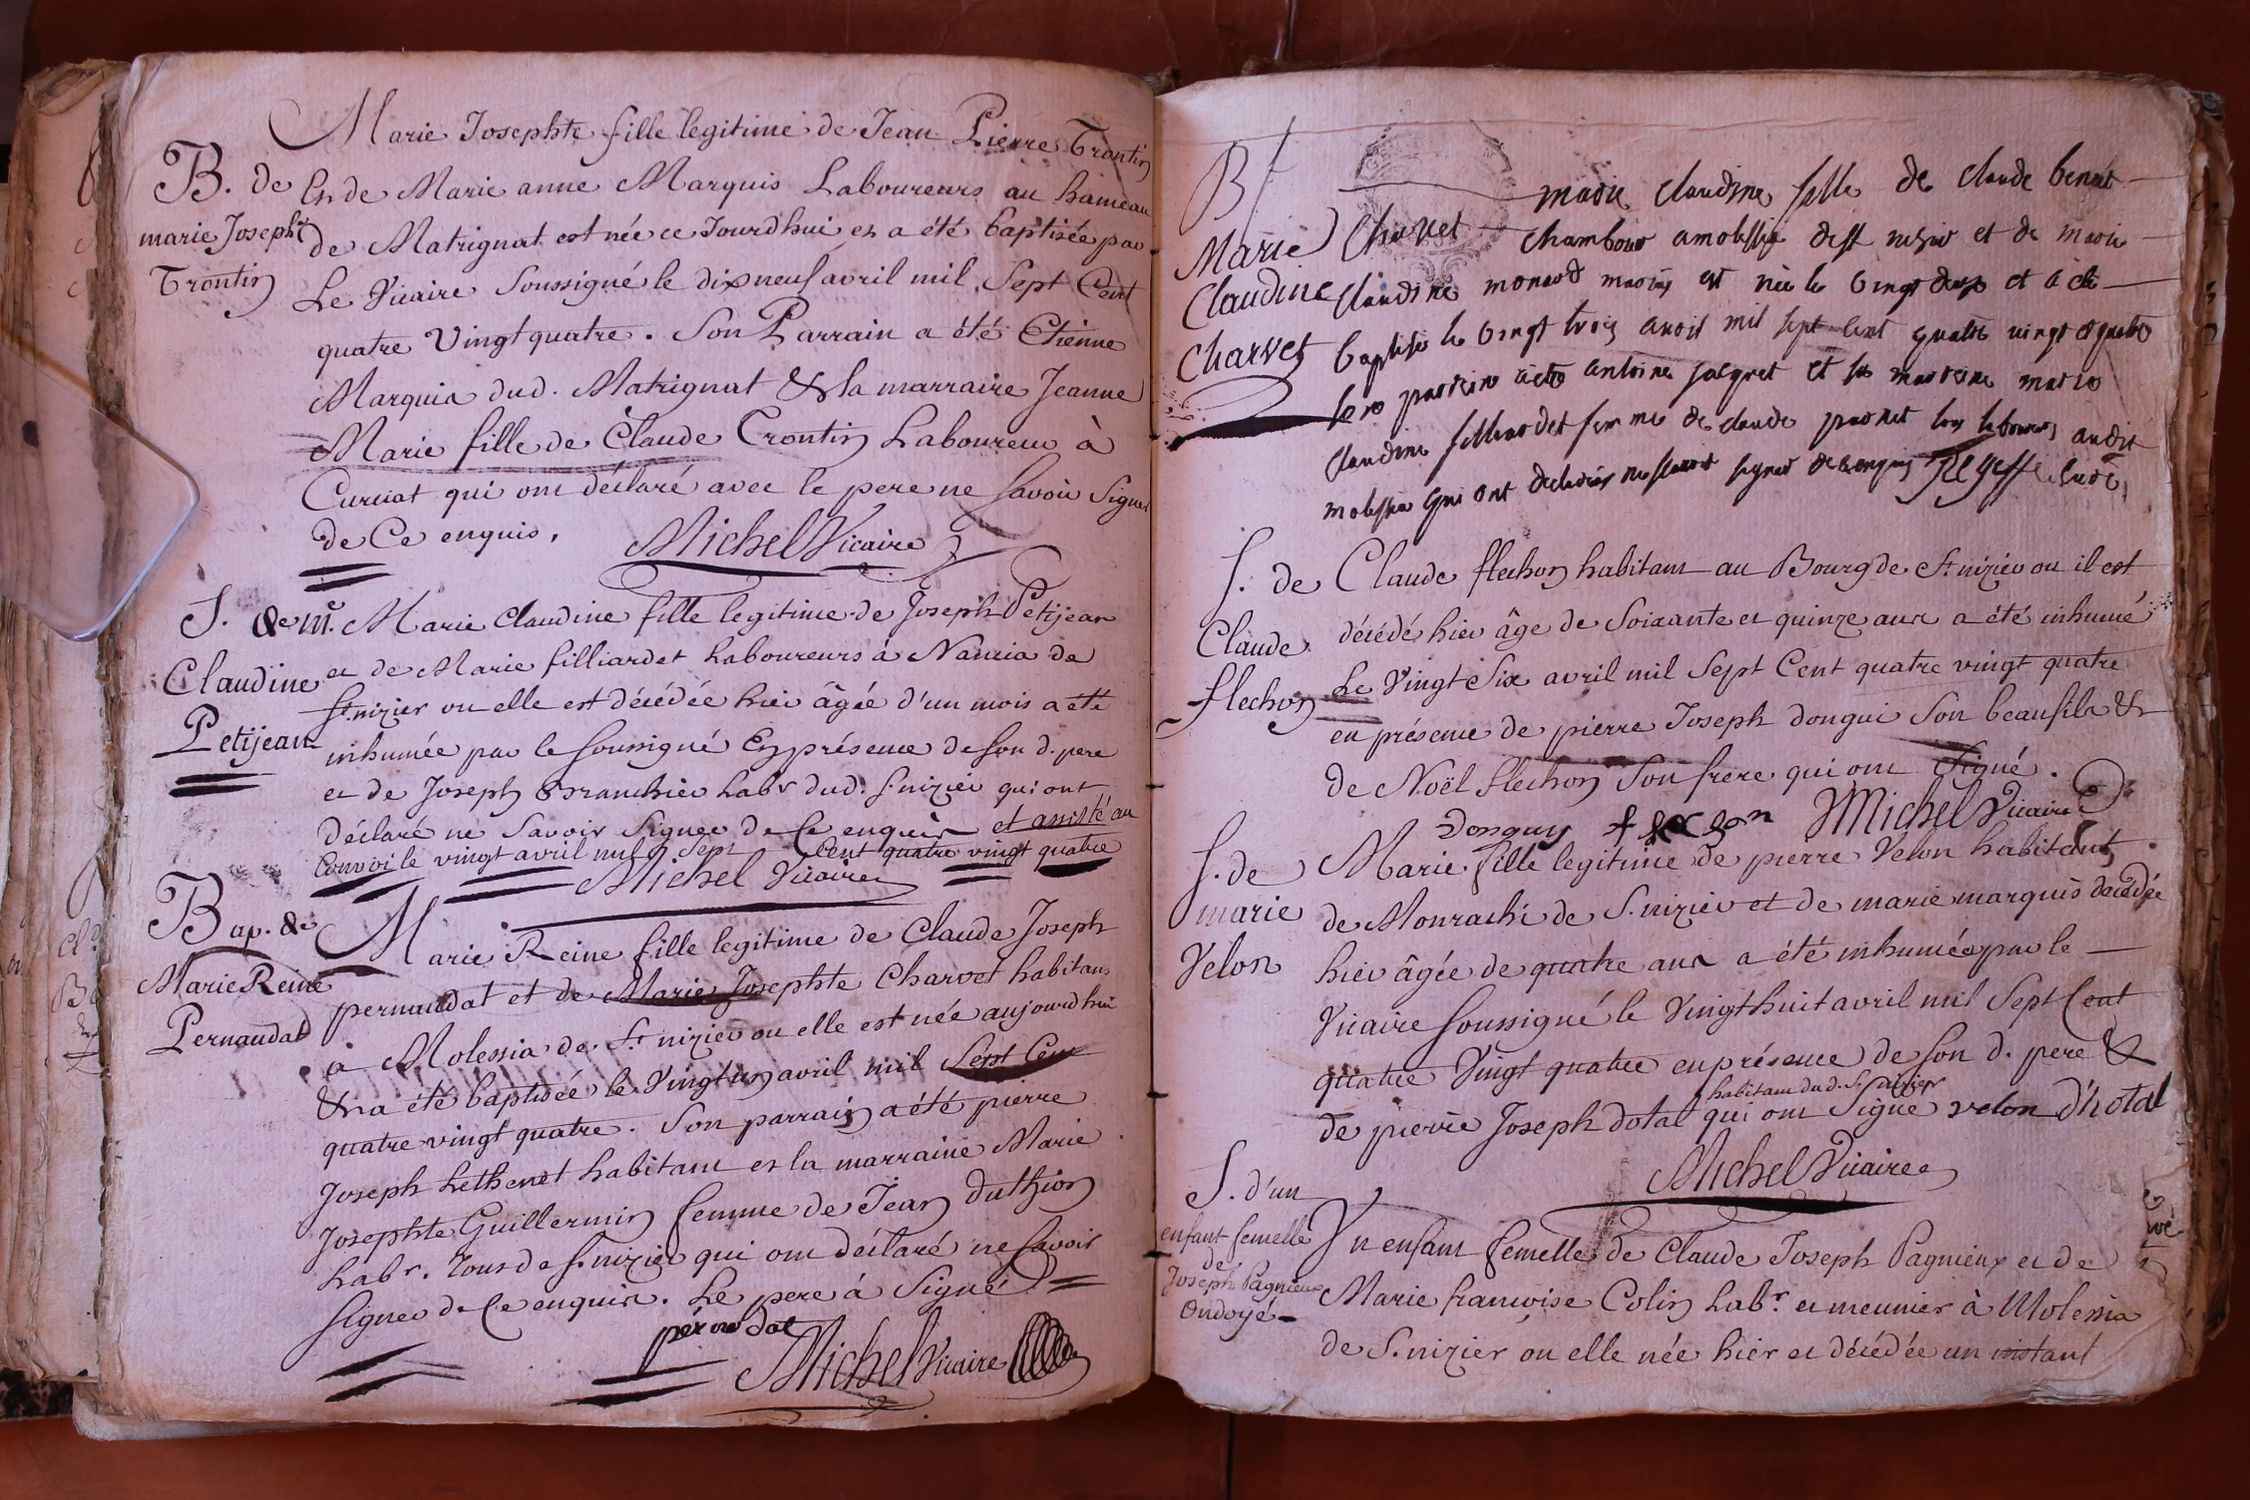 Marie Josephte fille legitime de Jean Pierre Trontin
B. de
marie Josephte
Trontin
En de Marie anne Marquis Laboureurs au hameau
de Matrignat est née ce Jourd'hui et a été baptisée par
Le Vicaire Soussigné le dix neuf avril mil Sept Cent
quatre Vingt quatre. Son Parrain a été Etienne
Marquis dud. Matrignat & la marraine Jeanne
Marie fille de Claude Trontin Laboureur à
Curciat qui ont déclaré avec le pere ne Savoir Signer
de Ce enquis. Michel Vicaire
S. de m.
Claudine
Petijean
Marie Claudine fille legitime de Joseph Petijean
et de Marie filliardet Laboureurs à Nancia de
St. nizier ou elle est décédée hier âgée d'un mois a été
inhumée par le Soussigné En présence de Son d. pere
et de Joseph Labr dud. S. nizier qui ont
déclaré ne Savoir Signer de Ce enquis et assisté au
Convoi le vingt avril mil Sept Cent quatre vingt quatre
Michel Vicaire
Bap. de
Marie Reine
Pernaudat
Marie Reine fille legitime de Claude Joseph
pernaudat et de Marie Josephte Charvet habitans
à Molessia de St nizier ou elle est née aujourd'hui
& a été baptisée le Vingt un avril mil Sept Cent
quatre vingt quatre. Son parrain a été pierre
Joseph Lethenet habitant et la marraine Marie
Josephte Guillermin femme de Jean duthion
Labr. Tous de S. nizier qui ont déclaré ne Savoir
Signer de Ce enquis. Le pere à Signé
Michel Vicaire
B
Marie
Claudine
Charvet
marie claudine fille de claude benoit
Charvet chambour a molessia et de marie
claudine monard mariés est née le vingt deux et a été
baptisé le vingt trois avril mil sept cent quatre vingt quatre
son parrein a été antoine jacquet et sa marreine marie
claudine filliardet femme de claude laboureurs audit
molessia qui ont déclarés ne scavoir signer de ce enquis
S. de
Claude
flechon
Claude flechon habitant au Bourg de St. nizier ou il est
décédé hier âge de Soixante et quinze ans a été inhumé
Le Vingt Six avril mil Sept Cent quatre vingt quatre
en présence de pierre Joseph dongui Son beaufils &
de Noël flechon Son frere qui ont Signé.
Donguy Michel Vicaire
S. de
marie
Velon
Marie fille legitime de pierre Velon habitant
de Monrachi de S. nizier et de marie marquis décédée
hier âgée de quatre ans a été inhumée par le
Vicaire Soussigné le Vingt huit avril mil Sept Cent
quatre Vingt quatre en présence de Son d. pere &
habitant dud. S. nizier
de pierre Joseph dotal qui ont Signé velon d'hotal
Michel Vicaire
S. d'un
enfant femelle
de
Joseph Pagnieux
Ondoyé
Un enfant femelle de Claude Joseph Pagnieux et de
Marie francoise Colin Labr. et meunier à Molessia
de S. nizier ou elle née hier et décédée un instant